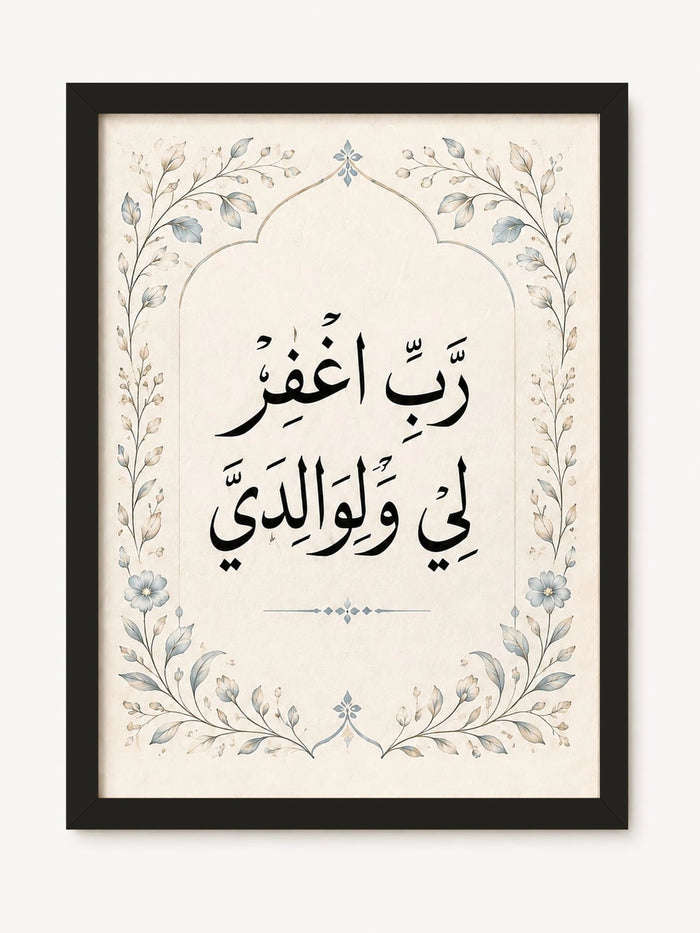 رَبِّ اغْفِرْ
لِيْ وَلِوَالِدَيَّ